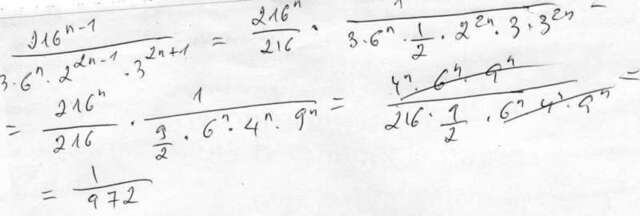 216^{n-1} / (3·6^n·2^{2n-1}·3^{2n+1}) = 216^n / 216 · 1 / (3·6^n·1/2·2^{2n}·3·3^{2n}) =
= 216^n / 216 · 1 / (9/2·6^n·4^n·9^n) = 4^n·6^n·9^n / (216·9/2·6^n·4^n·9^n) =
= 1 / 972